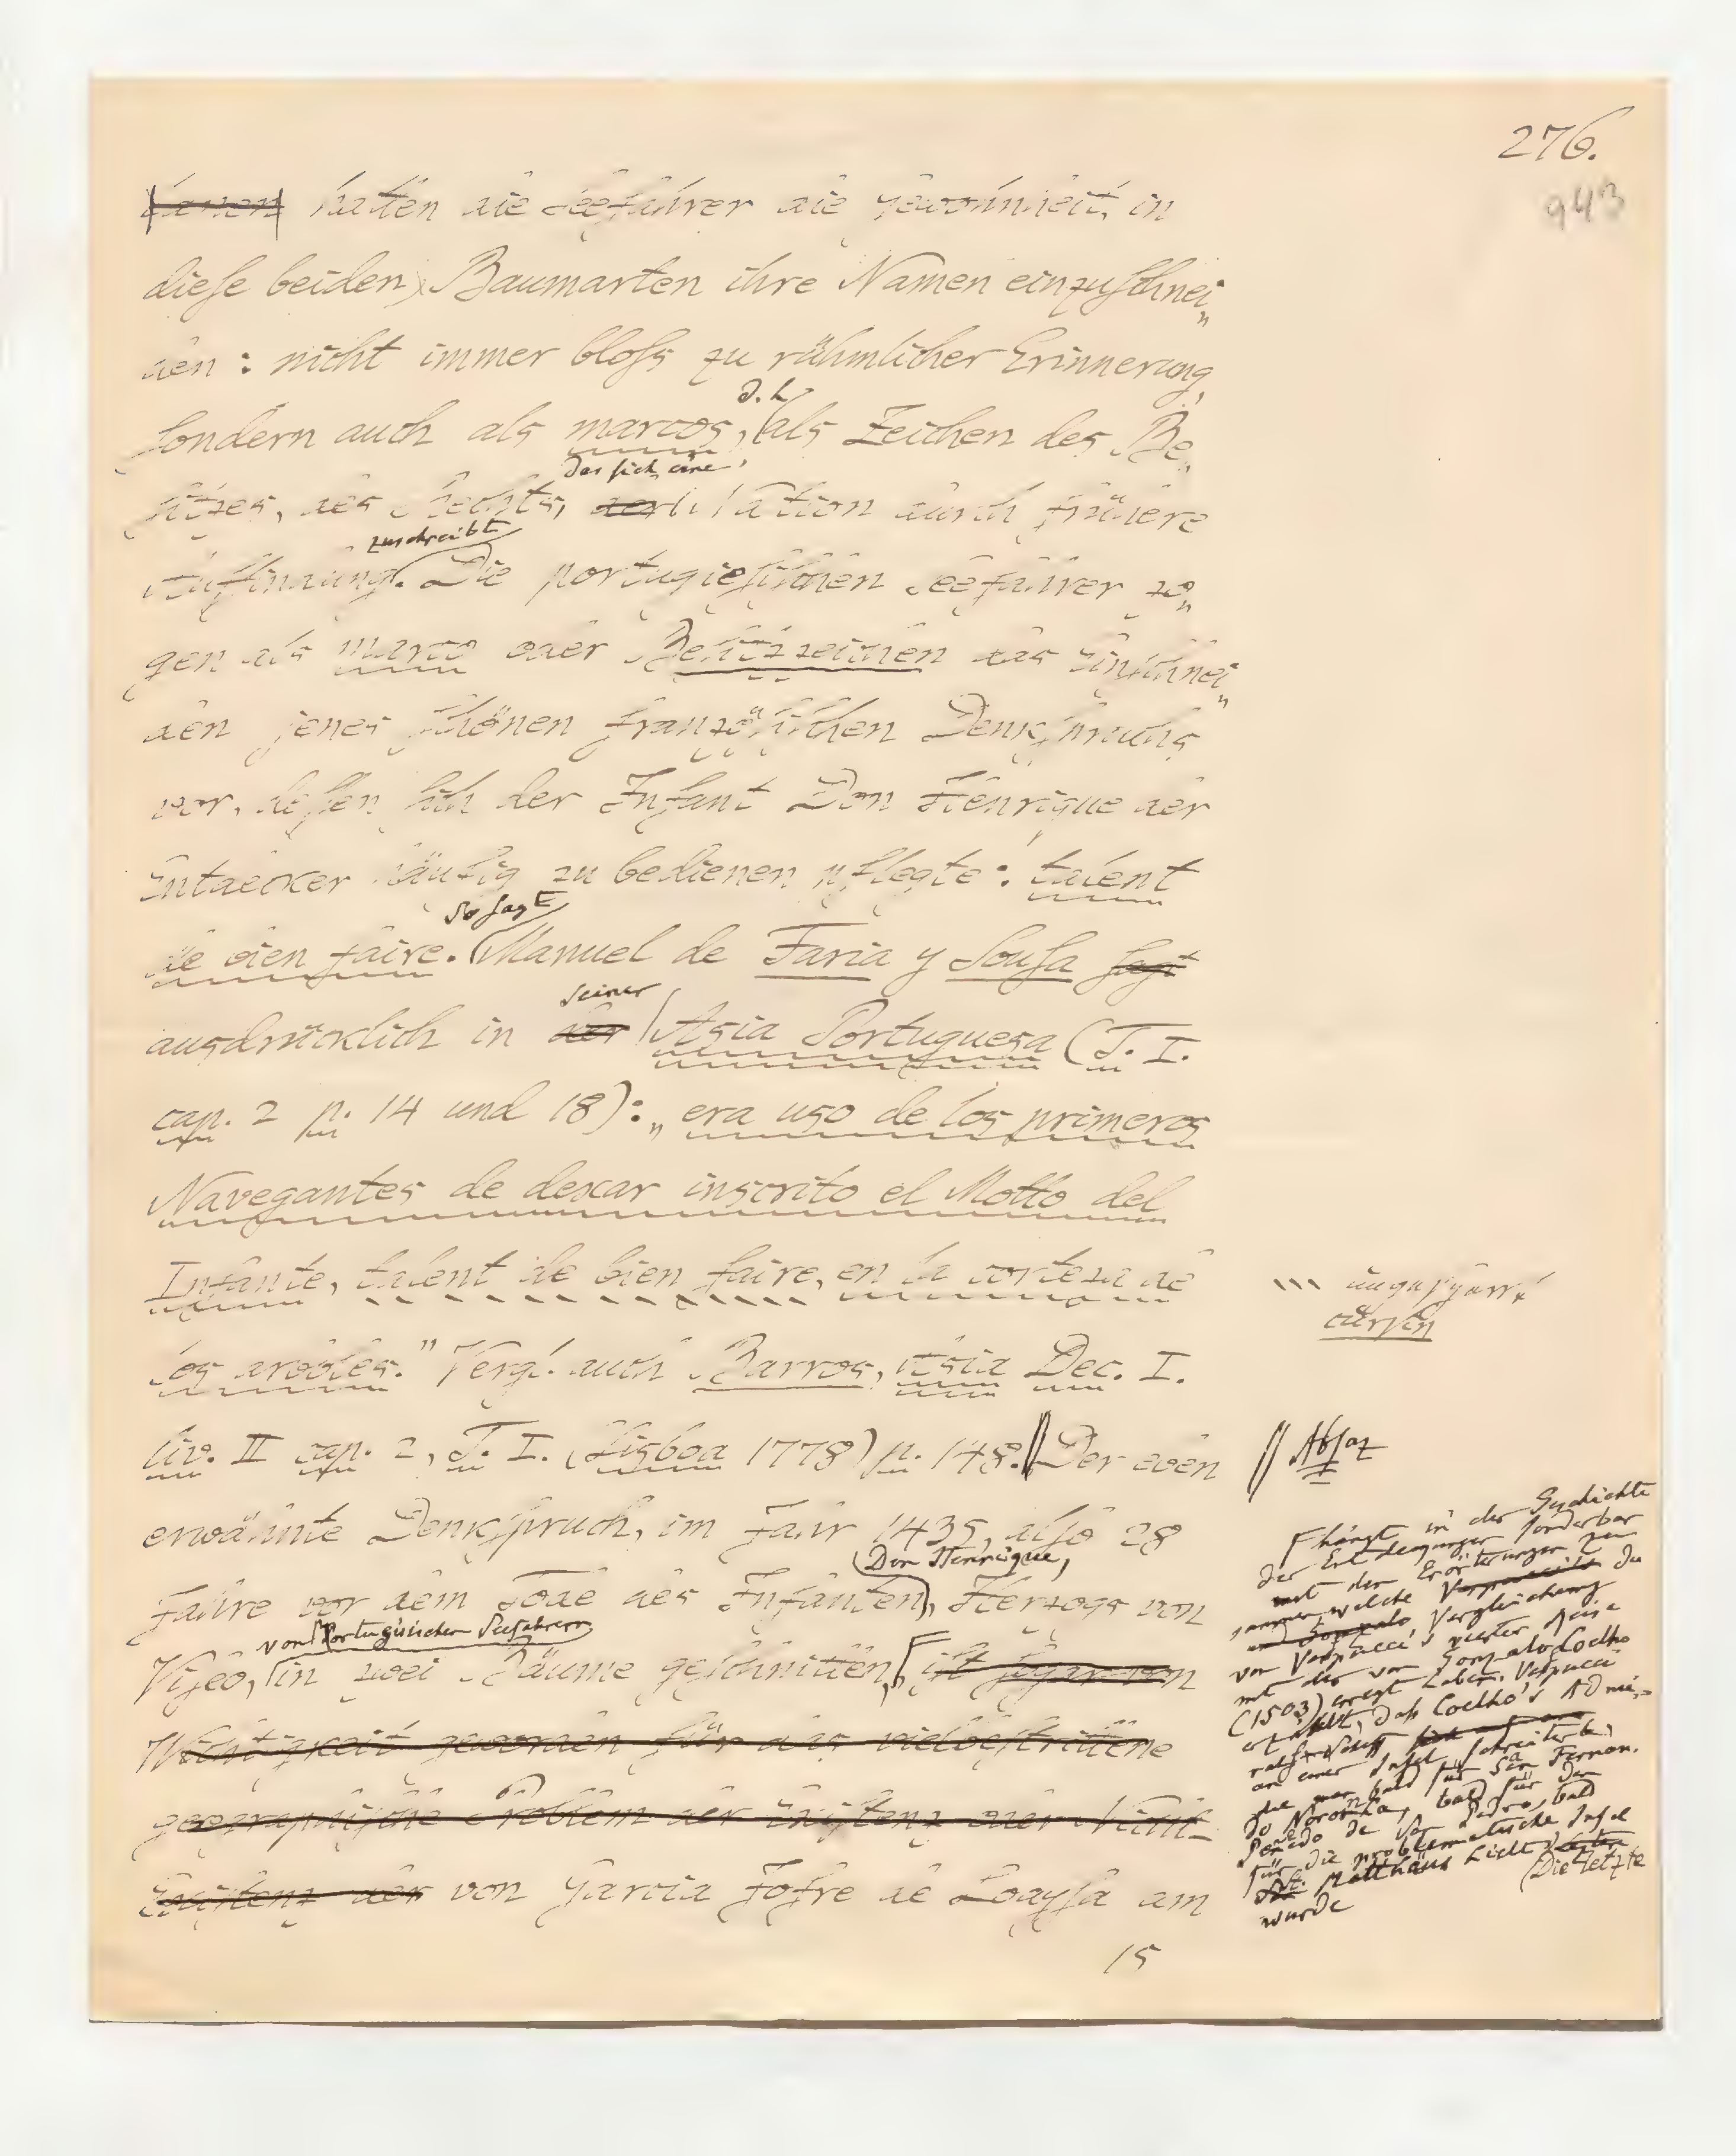 276.
943
hatten die Seefahrer die Gewohnheit, in
diese beiden Baumarten ihre Namen einzuschnei„
den: nicht immer bloss zu rühmlicher Erinnerung,
d. h.
sondern auch als marcos, (als Zeichen des Be„
das sich eine
sitzes, des Rechts, der Nation durch frühere
zuschreibt
Auffindung. Die portugiesischen Seefahrer zo„
gen als marco oder Besitzzeichen das Einschnei„
den jenes schönen französischen Denkspruchs
vor, dessen sich der Infant Don Henrique der
Entdecker häufig zu bedienen pflegte: talent
So sagt
de bien faire. (Manuel de Faria y Sousa sagt
seiner
ausdrücklich in der Asia Portuguesa (T. I.
cap. 2 p. 14 und 18): „era uso de los primeros
Navegantes de dexar inscrito el Motto del
Infante, talent de bien faire, en la corteza de
los arboles." Vergl. auch Barros, Asia Dec. I.
liv. II cap. 2, T. I. (Lisboa 1778) p. 148. || Der eben
erwähnte Denkspruch, im Jahr 1435, also 28
Don Henrique,
Jahre vor dem Tode des Infanten, Herzogs von
von Portugisischen Seefahrern
Viseo, in zwei Bäume geschnitten, ist sogar von
Wichtigkeit geworden für das vielbestrittene
geographische Problem der Existenz oder Nicht-
Existenz der von Garcia Jofre de Loaysa am
15
cursiv
|| Absaz
hängt in der Geschichte
der Entdeckungen sonderbar
mit den Erörterungen zu
sammen welche die
Vergleichung
von Vespucci's vierter Reise
mit der von Gonzalo Coelho
(1503) erregt haben. Vespucci
erzählt, daß Coelho's Admi-
ralschiff
an einer Insel scheiterte,
die man bald für San Fernan.
do Noronha, bald für den
Penedo de San Pedro, bald
für die problematische Insel
St. Matthäus hielt. (Die letzte
wurde